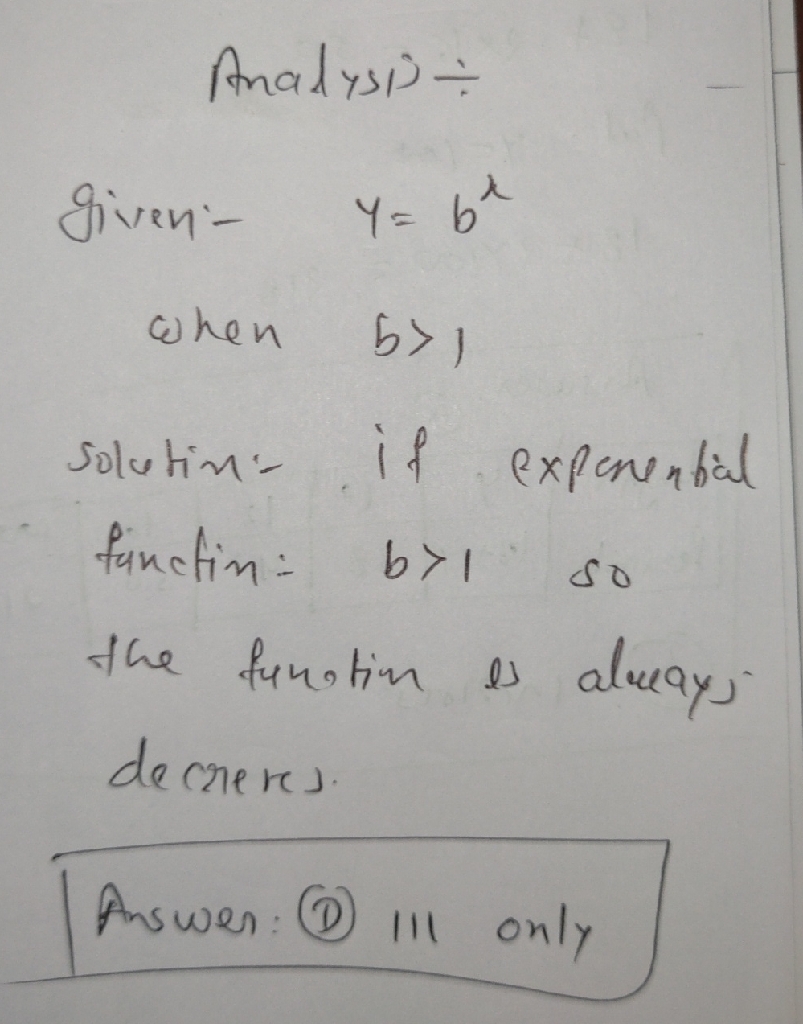 Analysis ÷
given :- y = b^x
when b > 1
solutin :- if exponential
functin : b > 1 so
the funotin is always
decreres.
Answer : Ⓓ III only